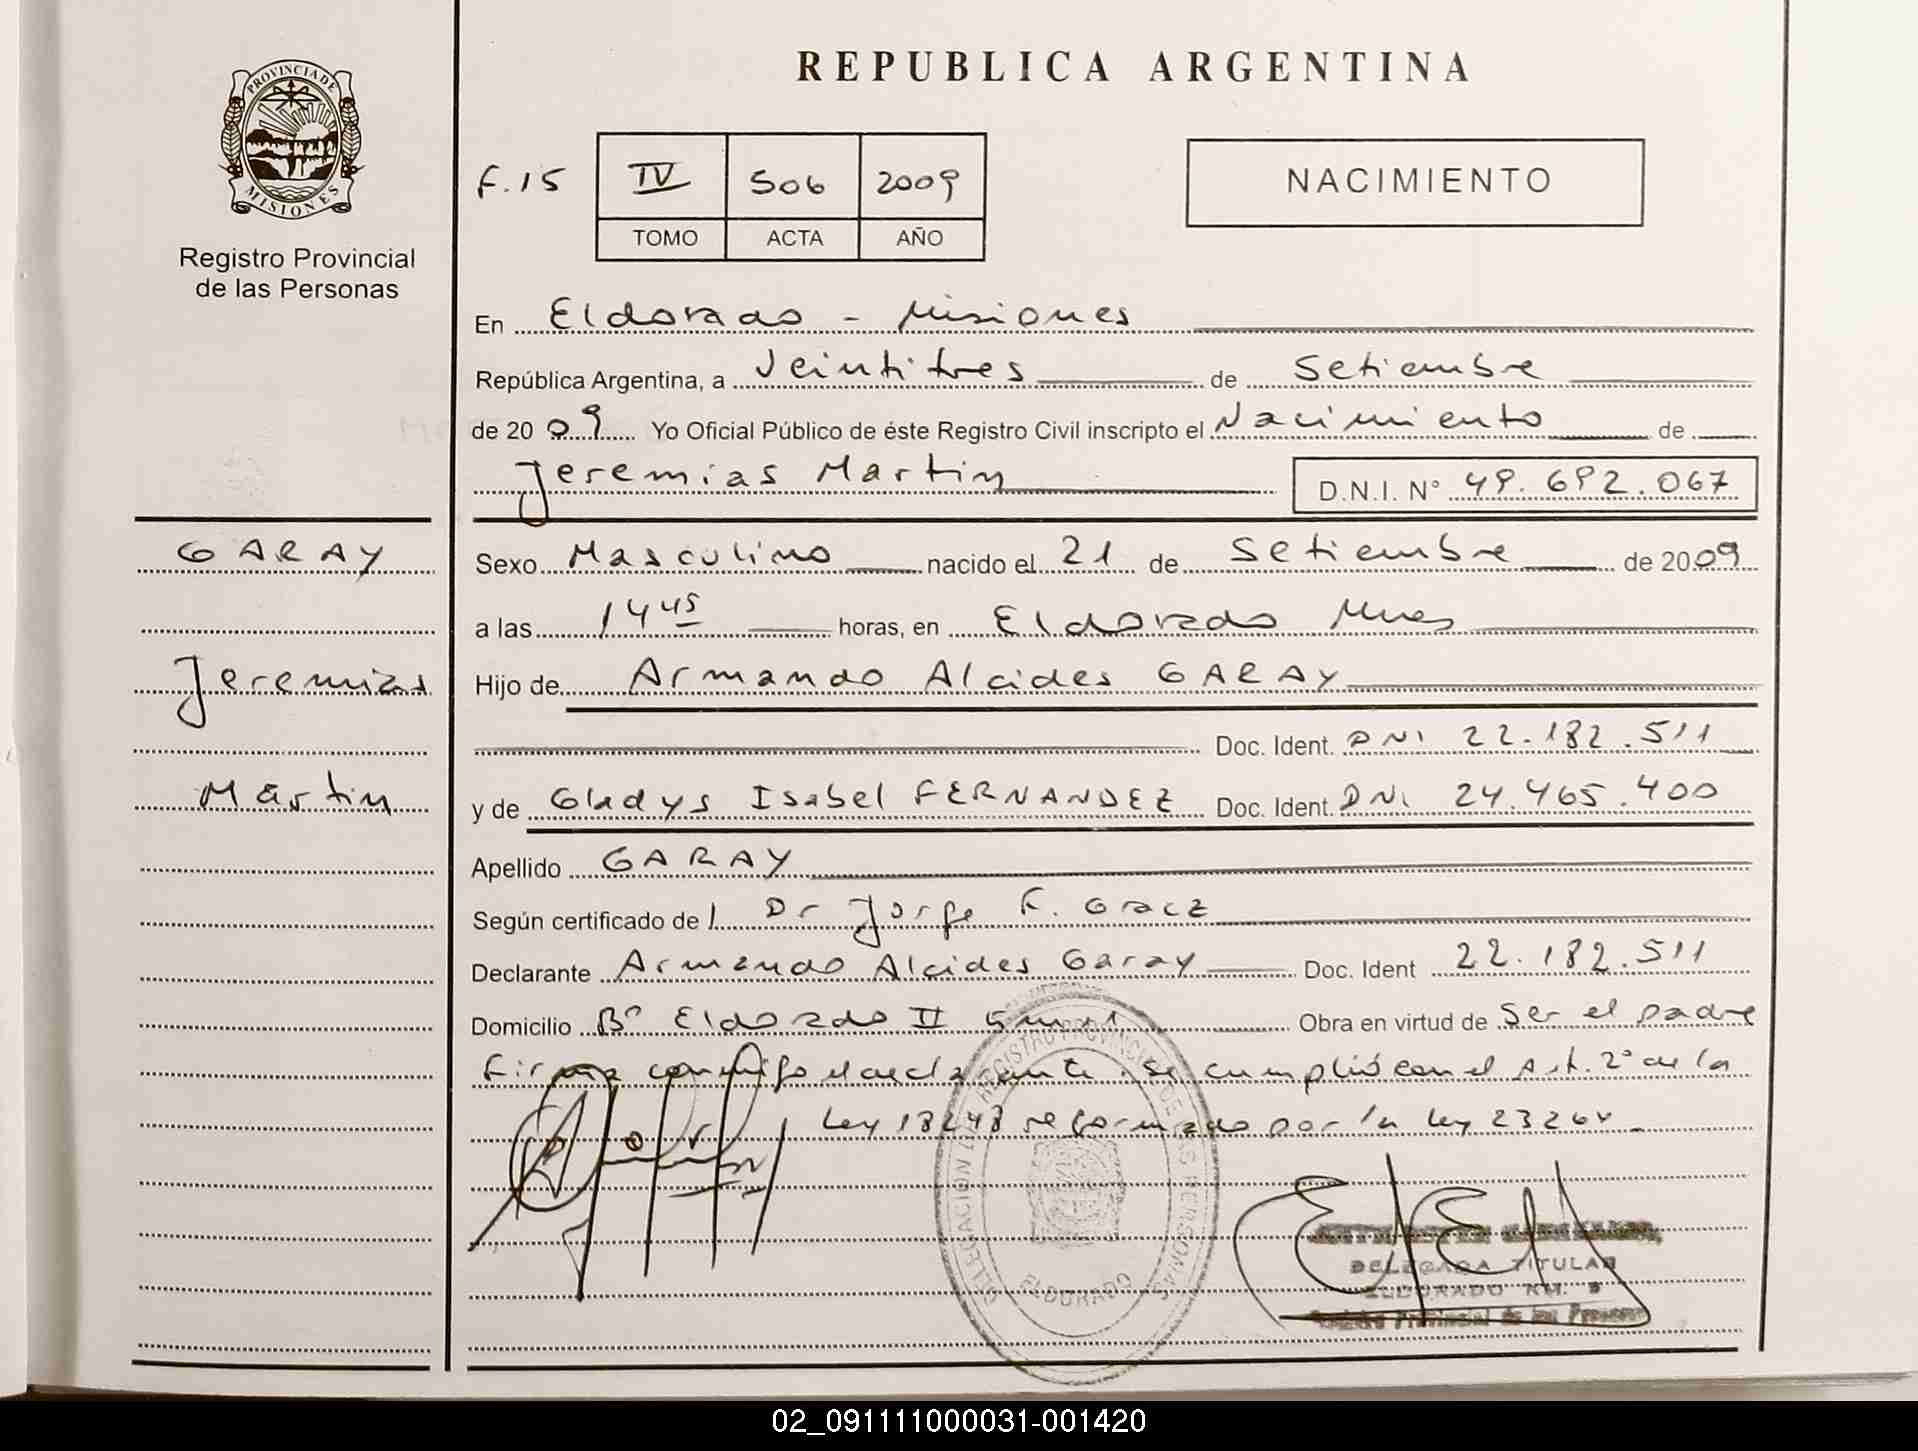 REPUBLICA ARGENTINA
PROVINCIA DE
MISIONES
Registro Provincial
de las Personas
F. 15
IV 506 2009
TOMO ACTA AÑO
NACIMIENTO
En Eldorado - Misiones
República Argentina, a Veintitres de Setiembre
de 2009 Yo Oficial Público de éste Registro Civil inscripto el Nacimiento de
Jeremias Martin D.N.I. N° 49.692.067
GARAY
Jeremias
Martin
Sexo Masculino nacido el 21 de Setiembre de 2009
a las 14 45 horas, en Eldorado Mnes
Hijo de Armando Alcides GARAY
Doc. Ident. DNI 22.182.511
y de Gladys Isabel FERNANDEZ Doc. Ident. DNI 24.465.400
Apellido GARAY
Según certificado de Dr Jorge F.
Declarante Armando Alcides Garay Doc. Ident 22.182.511
Domicilio B° Eldorado II Obra en virtud de Ser el padre
Firma conmigo el declarante. Se cumplió con el Art. 2° de la
Ley 18248 reformado por la Ley 23264
DELEGACION REGISTRO PROVINCIAL DE LAS PERSONAS
ELDORADO
DELEGADA TITULAR
ELDORADO KM. 9
Registro Provincial de las Personas
02_091111000031-001420